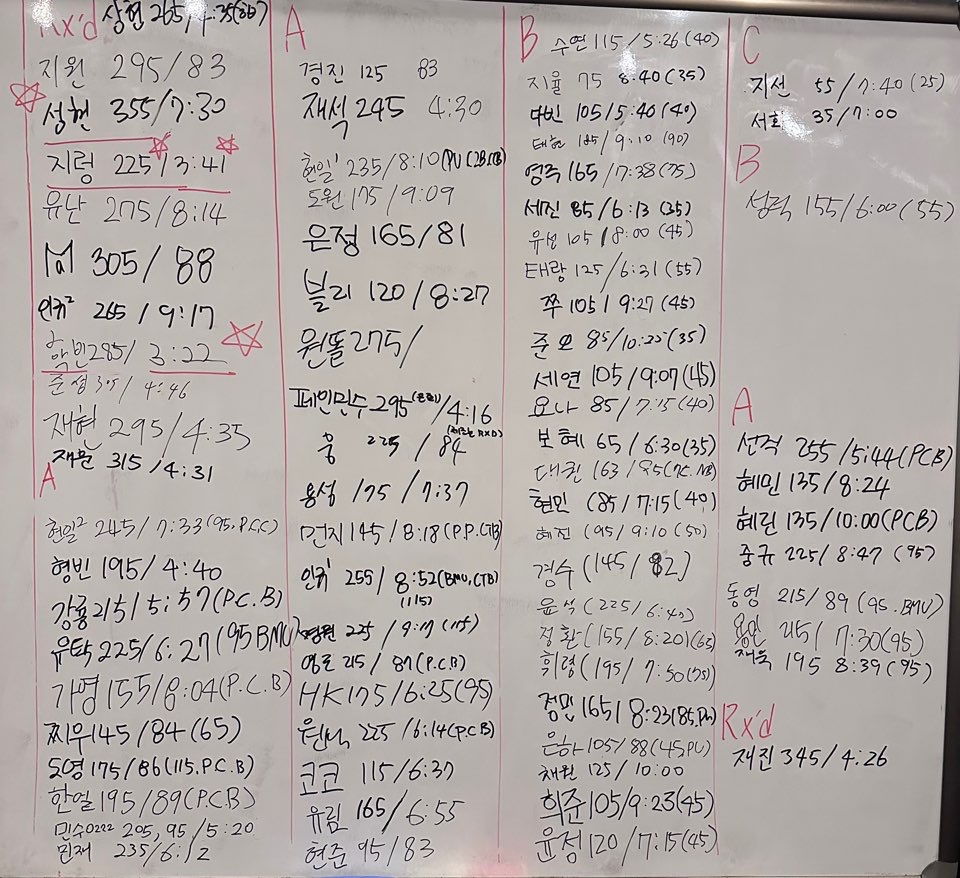 Rx'd 상현 265/4:35(36)
지원 295/83
성현 355/7:30
지령 225/3:41
유난 275/8:14
305/88
인귀² 265/9:17
학빈 285/3:22
준섭 305/4:46
재현 295/4:35
재윤 315/4:31
A
현일² 245/7:33(95.P.C.C)
형빈 195/4:40
강룡 215/5:57(P.C.B)
유탁 225/6:27(95BMU)
가영 155/8:04(P.C.B)
찌우 145/84(65)
도영 175/86(115.P.C.B)
한얼 195/89(P.C.B)
민수0222 205, 95/5:20
민재 235/6:12
A
경진 125 83
재석 245 4:30
현일' 235/8:10(PU C2B.CTB)
도원 175/9:09
은정 165/81
블리 120/8:27
원똘 275/
페인민수 295/4:16
웅 225/84
용성 175/7:37
먼지 145/8:18(P.P.CTB)
인귀' 255/8:52(BMU,CTB)
(115)
병원 225/9:17(115)
영로 215/87(P.C.B)
HK 175/6:25(95)
원식 225/6:14(P.C.B)
코코 115/6:37
유림 165/6:55
현준 95/83
B
수연 115/5:26(40)
지율 75 8:40(35)
다빈 105/5:40(40)
태현 185/9:10(90)
영주 165/7:38(75)
세진 85/6:13(35)
유선 105/8:00(45)
태랑 125/6:31(55)
쭈 105/9:27(45)
준오 85/10:25(35)
세연 105/9:07(45)
요나 85/7:15(40)
보혜 65/6:30(35)
대퀸 163/85(7C.NB)
현민 (85/7:15(40)
혜진 (95/9:10(50)
경수 (145/82)
윤석 (225/6:40)
정환 (155/8:20)(65
휘령 (195/7:50(75)
정민 165/8:23(85.PU)
은하 105/88(45,PU)
채원 125/10:00
희준 105/9:23(45)
윤정 120/7:15(45)
C
지선 55/7:40(25)
서호 35/7:00
B
성력 155/6:00(55)
A
선적 255/5:44(PCB)
혜민 135/8:24
혜린 135/10:00(PCB)
중규 225/8:47 (95)
동영 215/89(95.BMU)
용민 215/7:30(95)
재욱 195 8:39(95)
Rx'd
재진 345/4:26